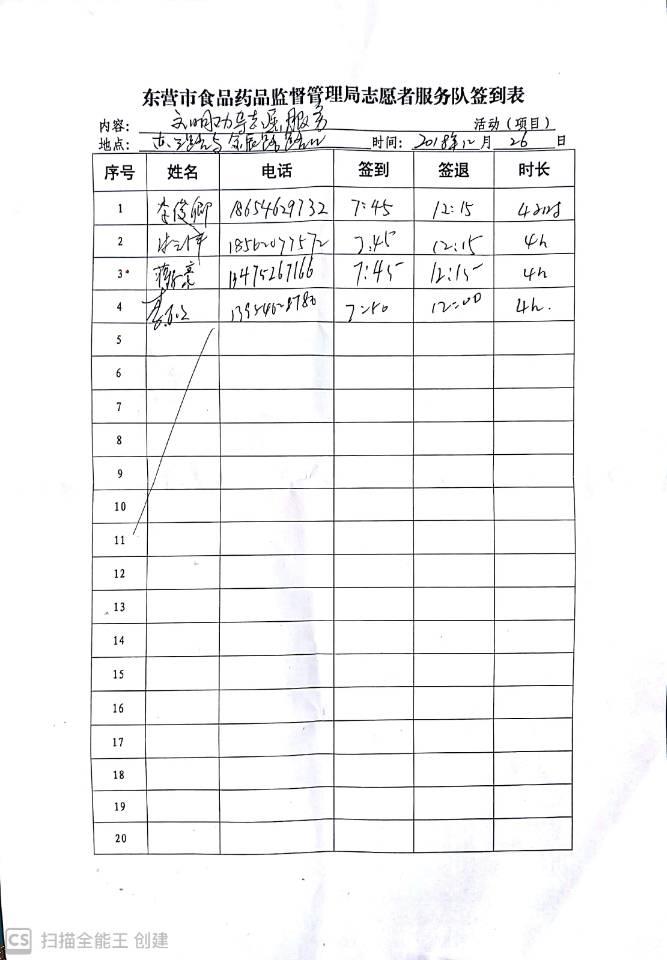 东营市食品药品监督管理局志愿者服务队签到表
内容: 文明劝导志愿服务 活动（项目）
地点: 时间: 2018年12月26日
序号 姓名 电话 签到 签退 时长
1 李俊卿 18654629732 7:45 12:15 4小时
2 7:45 12:15 4h
3 13475267166 7:45 12:15 4h
4 7:50 12:00 4h.
5
6
7
8
9
10
11
12
13
14
15
16
17
18
19
20
CS 扫描全能王 创建